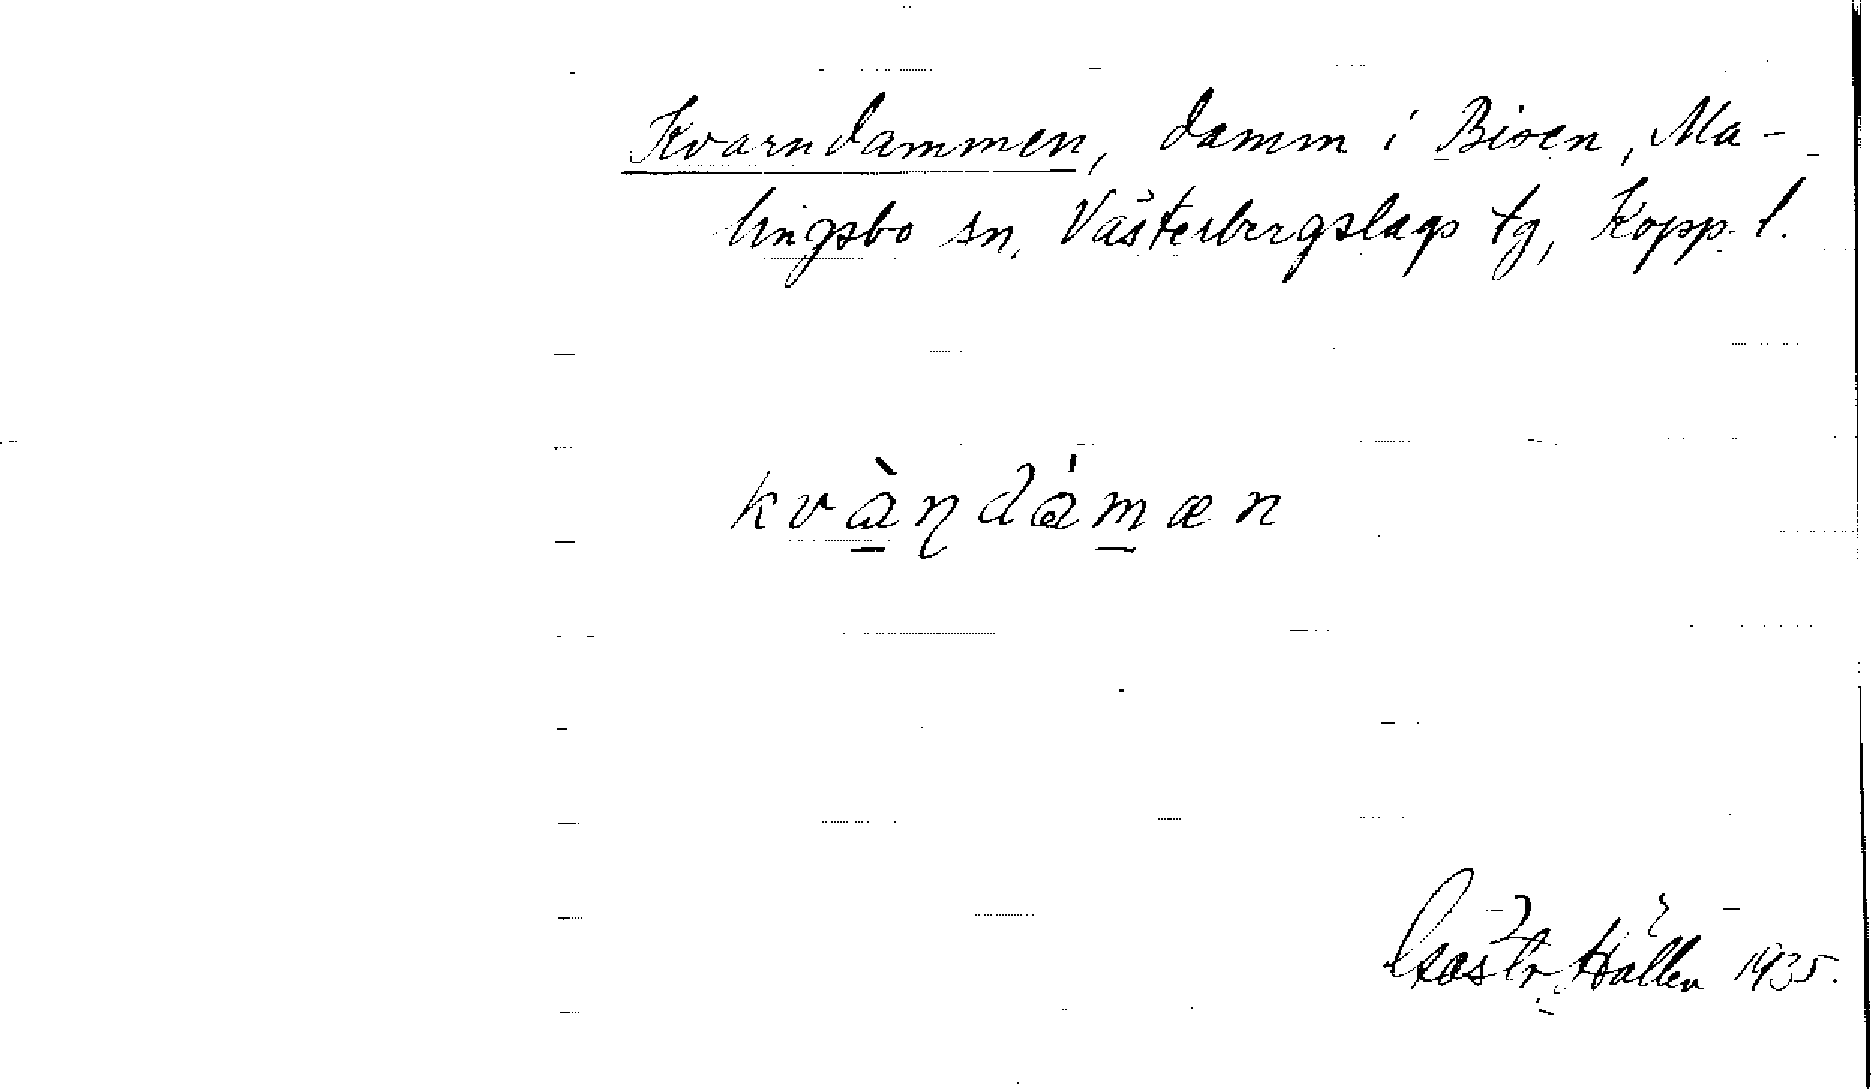 Kvarndammen, damm i Bisen, Ma-
lingsbo sn, Västerbergslags tg, Kopp. l.
kvàṇdámæn
Hallen 1935.